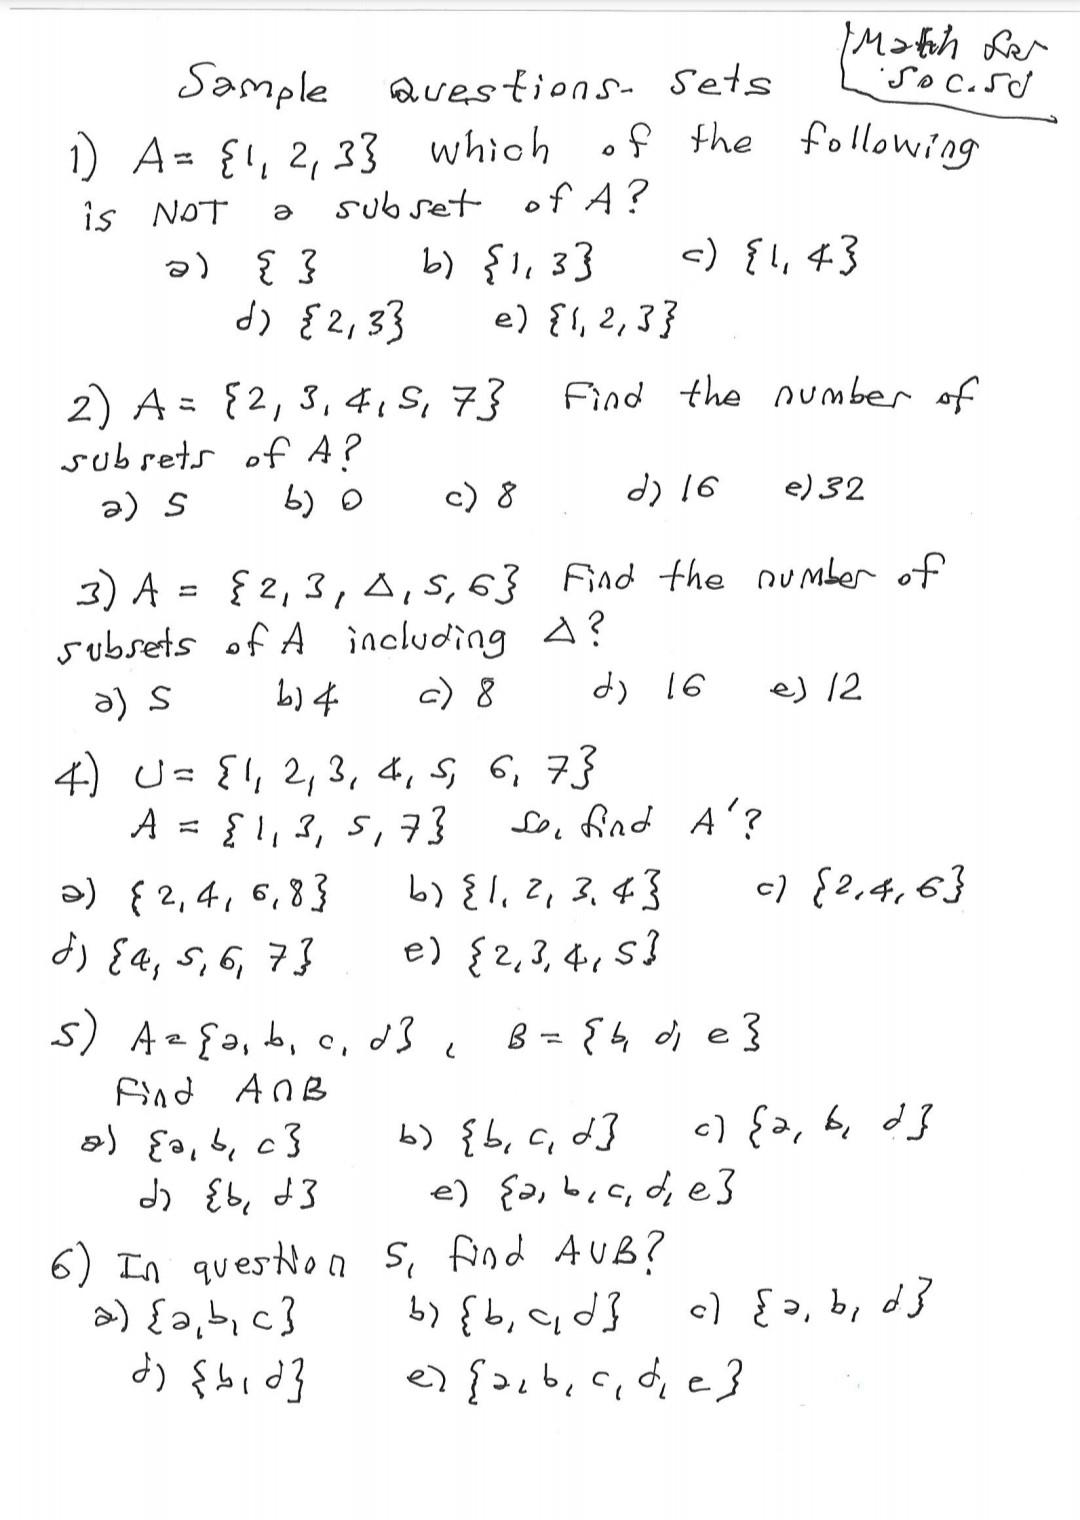 Math for
Soc. Sci
Sample Questions - Sets
1) A = {1, 2, 3} which of the following
is NOT a subset of A?
a) { } b) {1, 3} c) {1, 4}
d) {2, 3} e) {1, 2, 3}
2) A = {2, 3, 4, 5, 7} Find the number of
subsets of A?
a) 5 b) 0 c) 8 d) 16 e) 32
3) A = {2, 3, Δ, 5, 6} Find the number of
subsets of A including Δ?
a) 5 b) 4 c) 8 d) 16 e) 12
4) U = {1, 2, 3, 4, 5, 6, 7}
A = {1, 3, 5, 7} So, find A'?
a) {2, 4, 6, 8} b) {1, 2, 3, 4} c) {2, 4, 6}
d) {4, 5, 6, 7} e) {2, 3, 4, 5}
5) A = {a, b, c, d}, B = {b, d, e}
Find A∩B
a) {a, b, c} b) {b, c, d} c) {a, b, d}
d) {b, d} e) {a, b, c, d, e}
6) In question 5, find A∪B?
a) {a, b, c} b) {b, c, d} c) {a, b, d}
d) {b, d} e) {a, b, c, d, e}